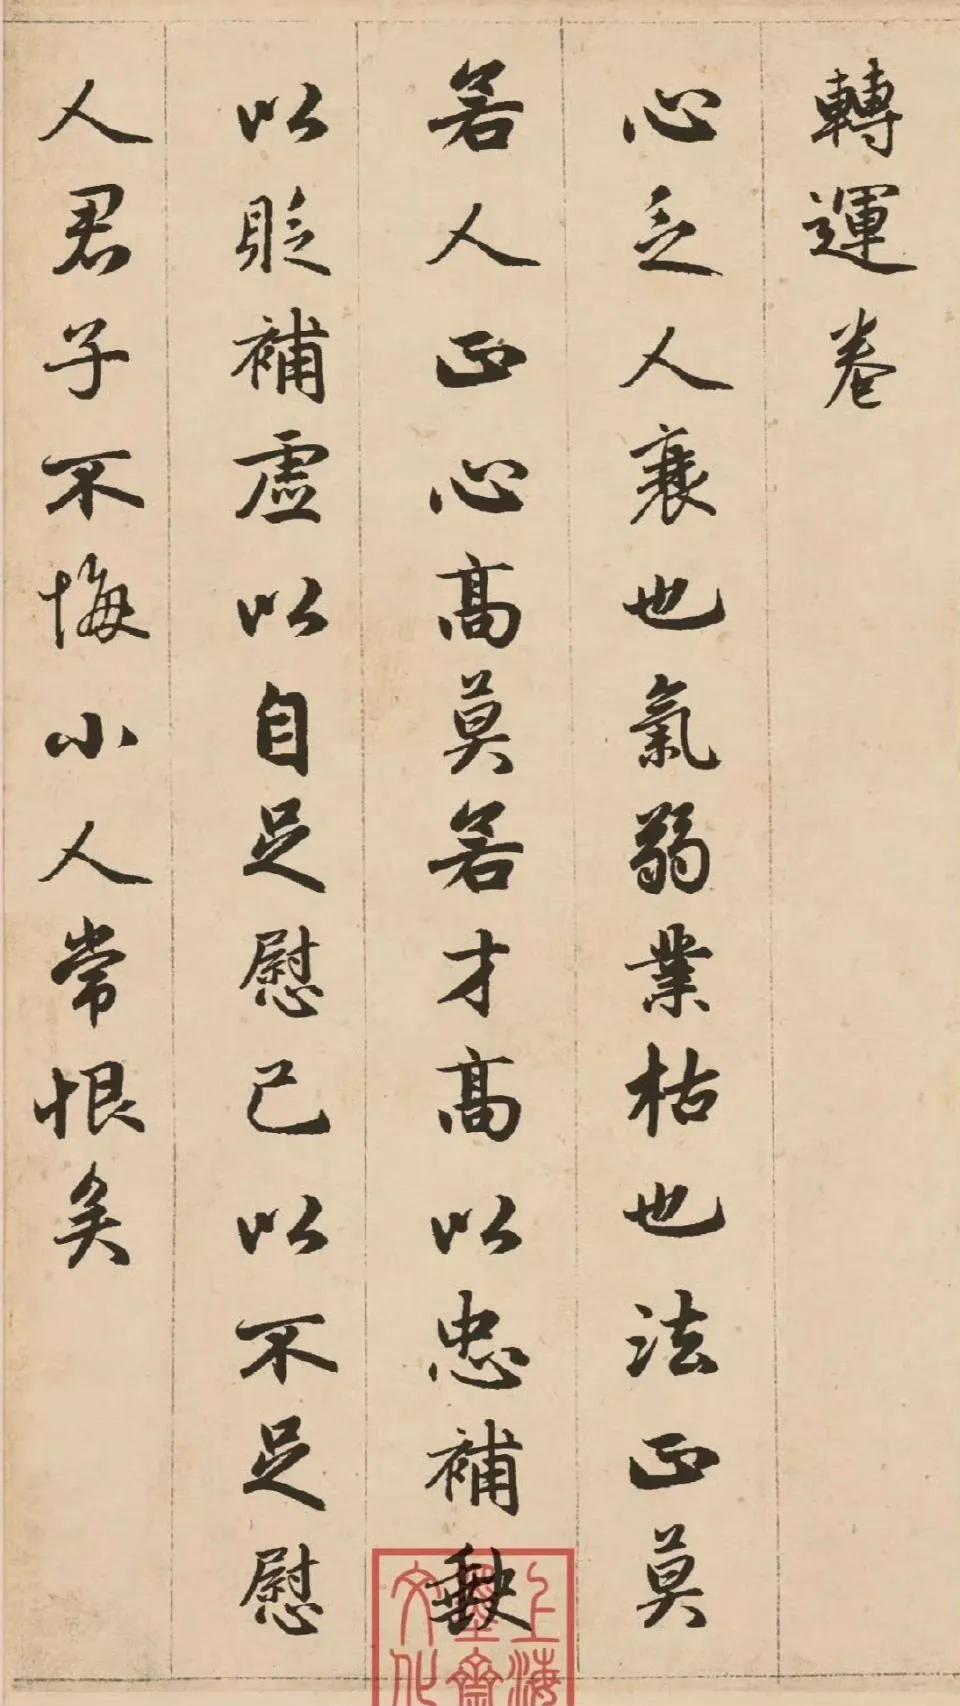 轉運卷
心乏人衰也氣弱業枯也法正莫
若人正心高莫若才高以忠補缺
以貶補虛以自足慰己以不足慰
人君子不悔小人常恨矣
上海
墨齋
文化